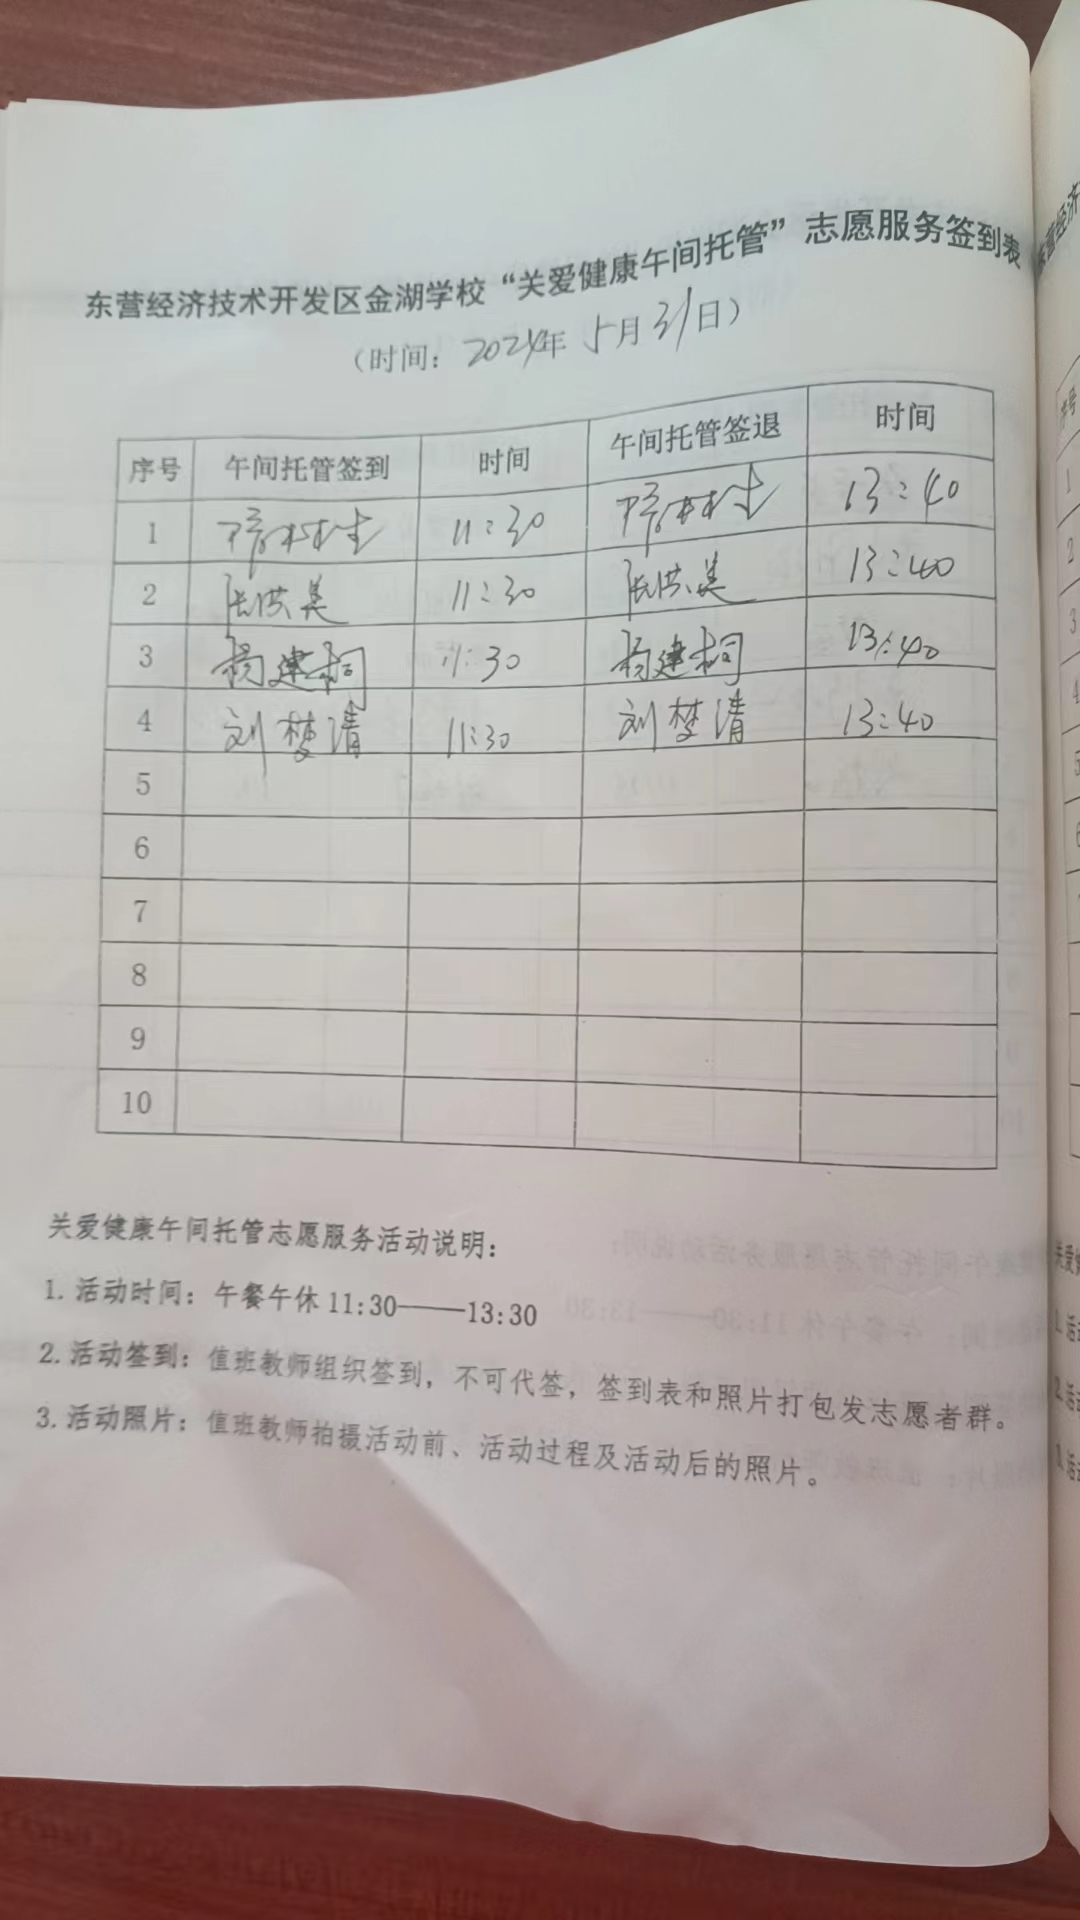 东营经济技术开发区金湖学校“关爱健康午间托管”志愿服务签到表
（时间：2024年 5月31日）
序号 午间托管签到 时间 午间托管签退 时间
1 11:30 13:40
2 张洪美 11:30 张洪美 13:40
3 杨建桐 11:30 杨建桐 13:40
4 刘梦清 11:30 刘梦清 13:40
5
6
7
8
9
10
关爱健康午间托管志愿服务活动说明：
1. 活动时间：午餐午休 11:30——13:30
2. 活动签到：值班教师组织签到，不可代签，签到表和照片打包发志愿者群。
3. 活动照片：值班教师拍摄活动前、活动过程及活动后的照片。